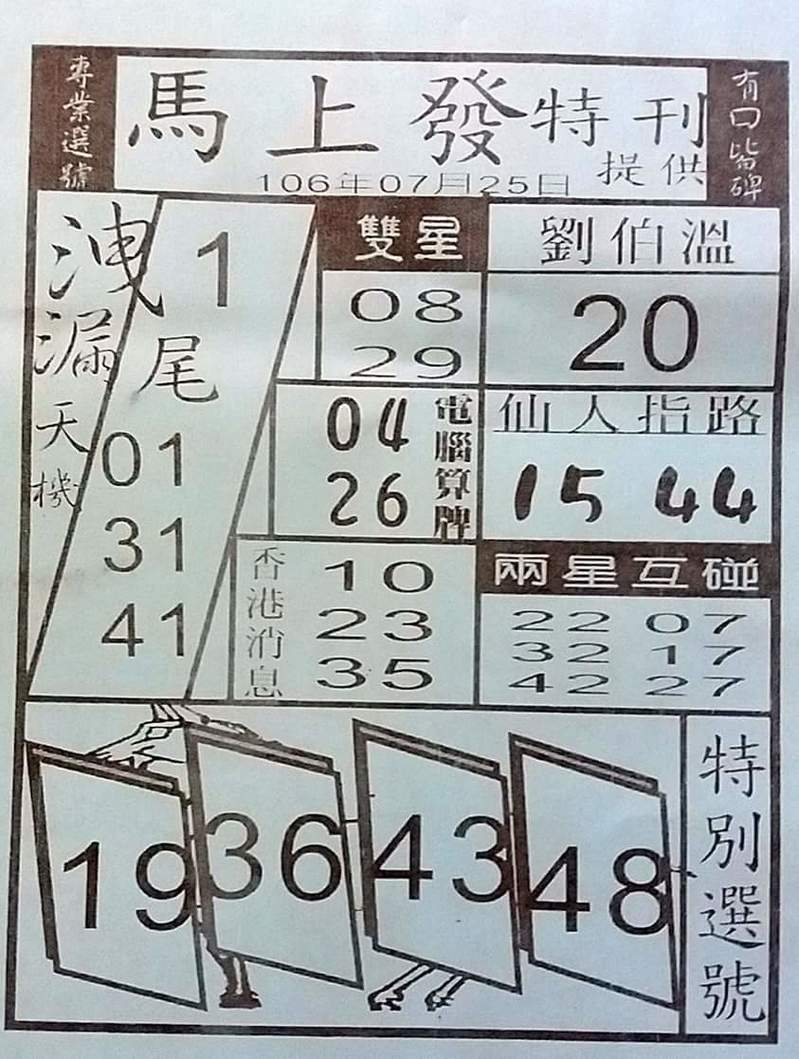 專業選號
馬上發特刊
提供
有口皆碑
106年07月25日
洩漏天機
1
尾
01
31
41
雙星
08
29
劉伯溫
20
04
26
電腦算牌
仙人指路
15 44
香港消息
10
23
35
兩星互碰
22 07
32 17
42 27
19 36 43 48
特別選號